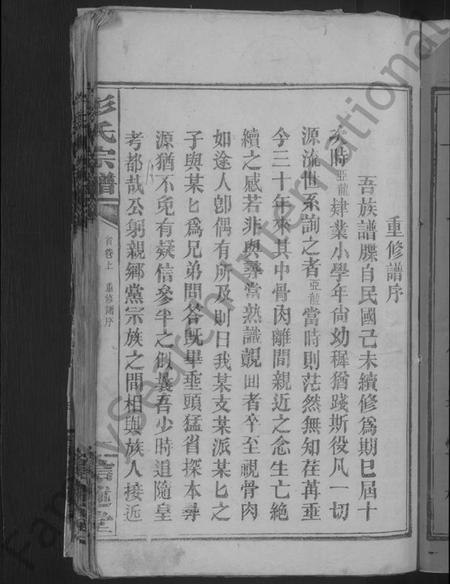 重修譜序
吾族譜牒自民國己未續修爲期已屆十
次時亞龍肄業小學年尙幼穉猶踐斯役凡一切
源流世系詢之者亞龍當時則茫然無知荏苒垂
今三十年來其中骨肉離間親近之念生亡絶
續之感若非與尋常熟識覿面者卒至視骨肉
如途人卽偶有所及則曰我某支某派某匕之
子與某匕爲兄弟問答旣畢垂頭猛省探本尋
源猶不免有疑信參半之似曩吾少時追隨皇
考都哉公躬親鄉黨宗族之間相與族人接近
彭氏宗譜
首卷上 重修譜序
FamilySearch International